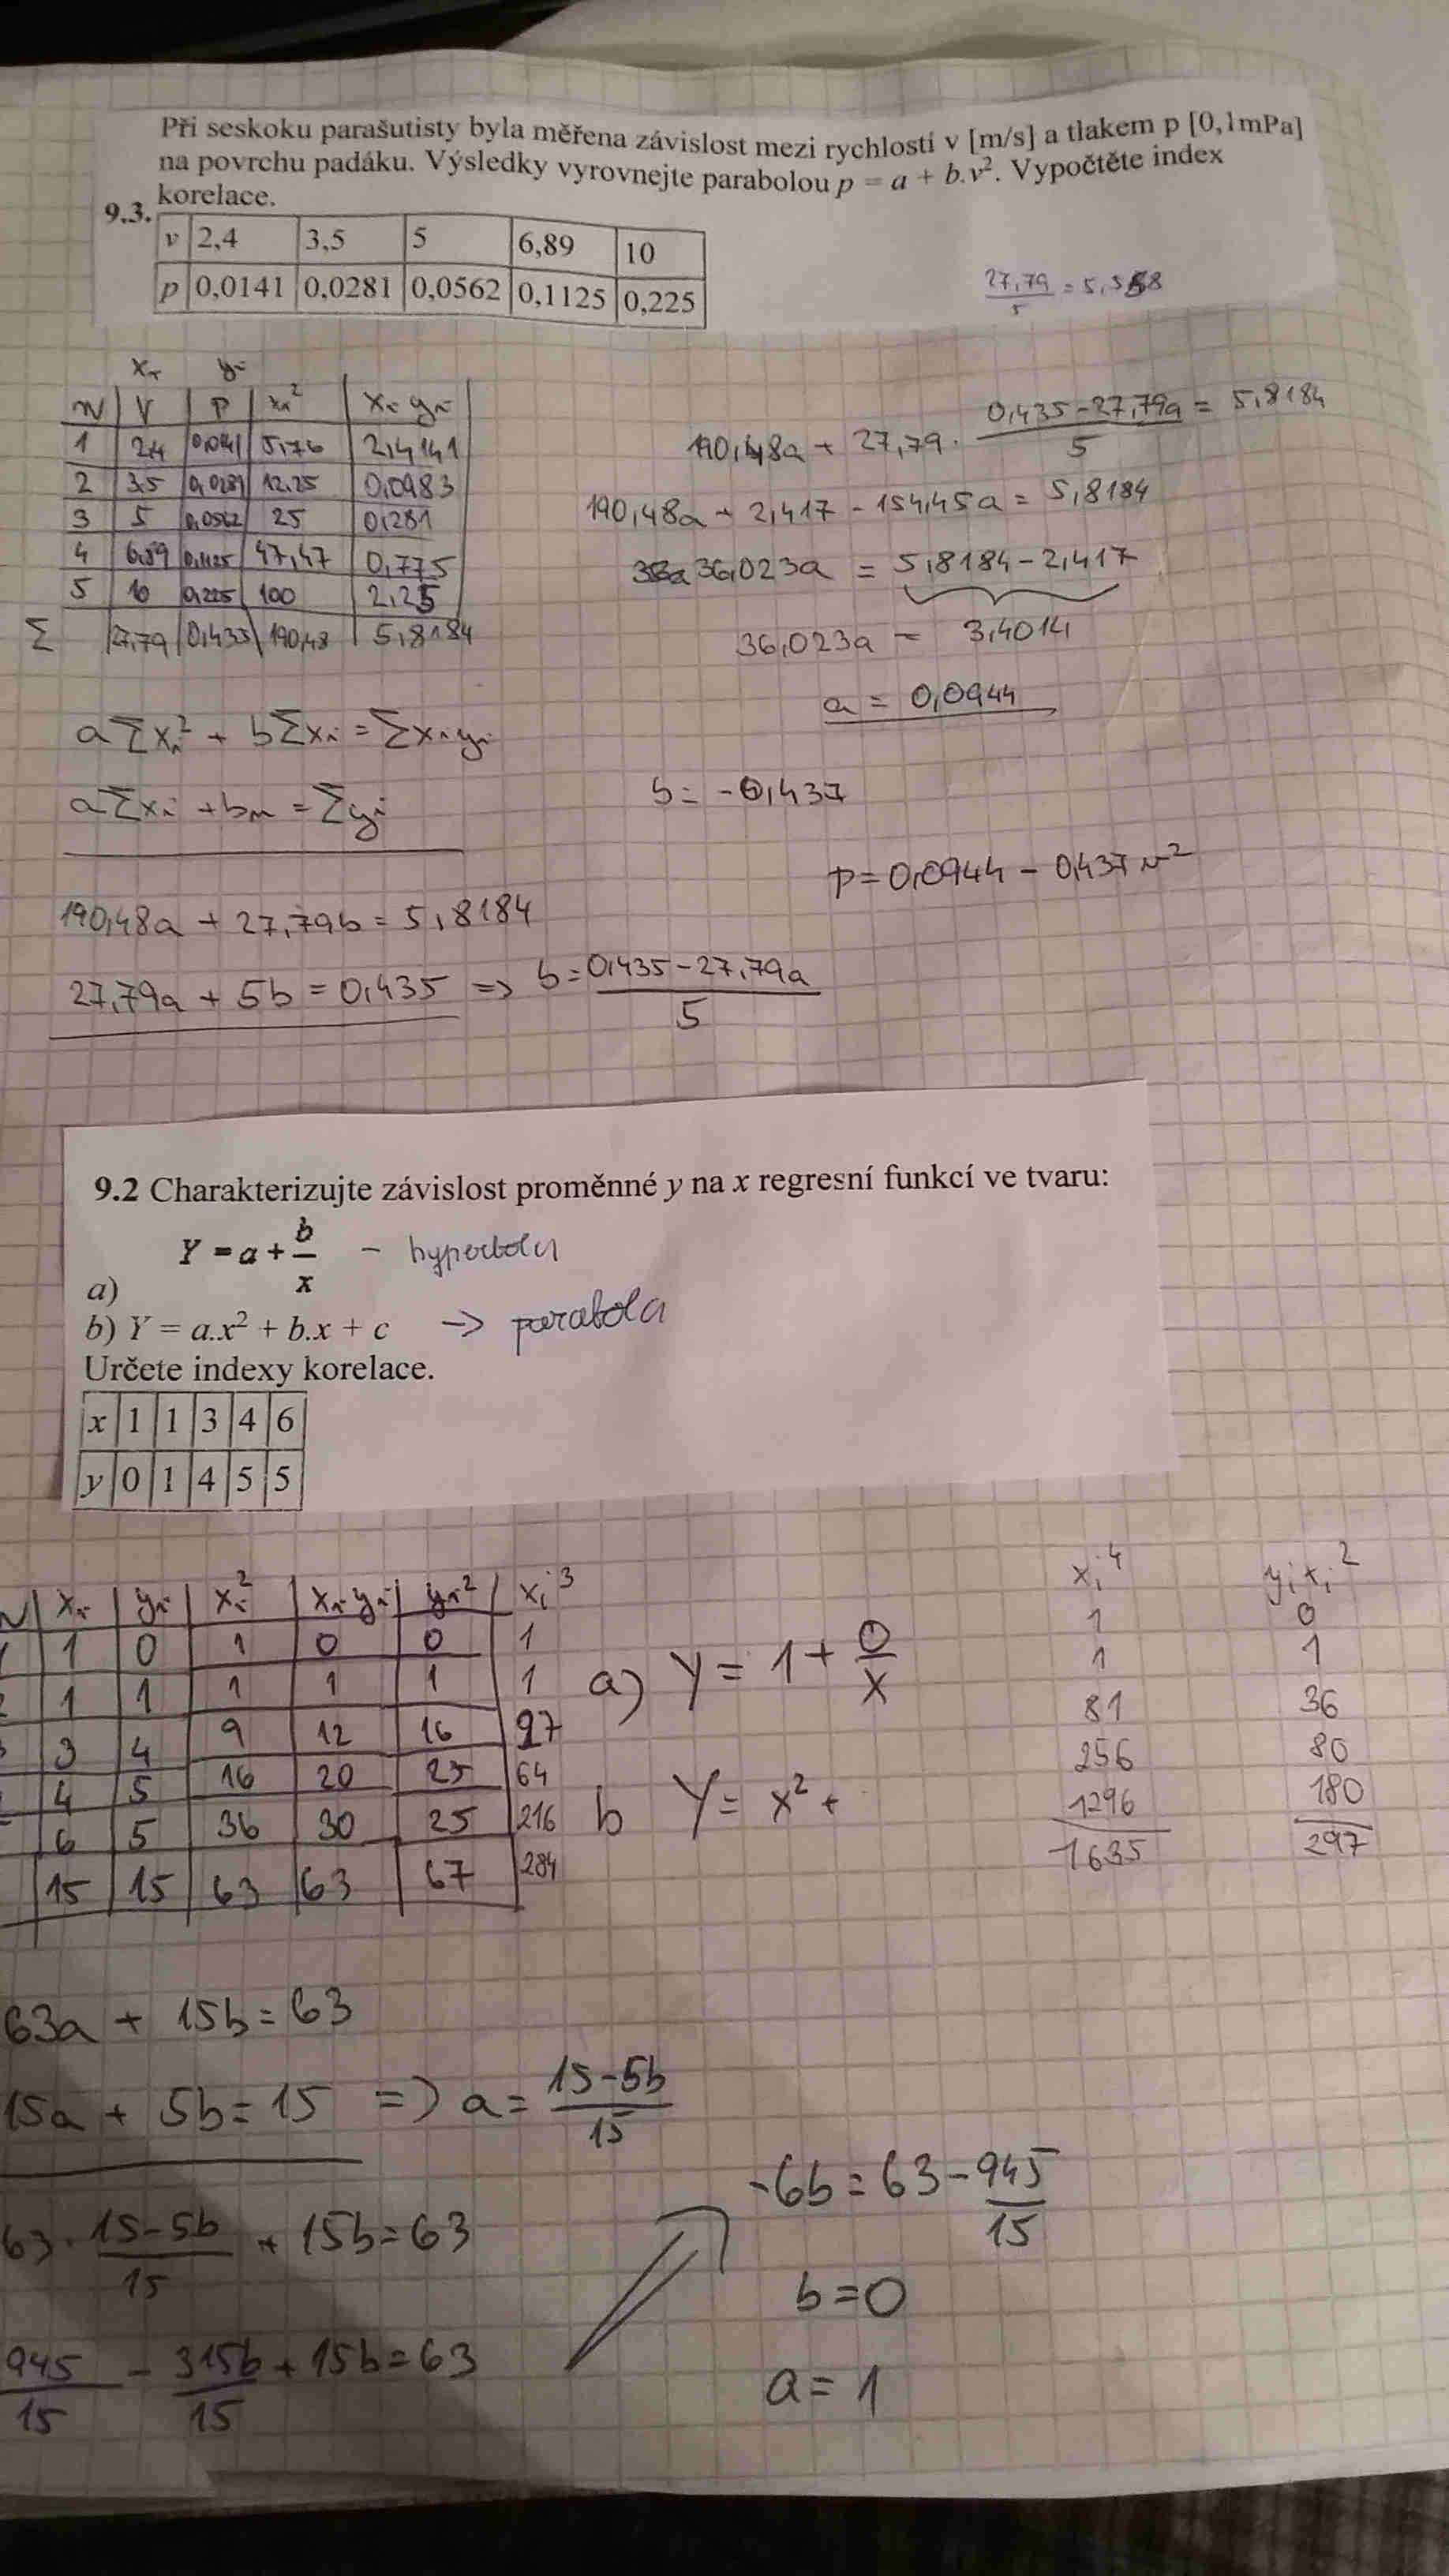 Při seskoku parašutisty byla měřena závislost mezi rychlostí v [m/s] a tlakem p [0,1mPa]
na povrchu padáku. Výsledky vyrovnejte parabolou p = a + b.v². Vypočtěte index
korelace.
9.3.
v 2,4 3,5 5 6,89 10
p 0,0141 0,0281 0,0562 0,1125 0,225
27,79/5 = 5,558
xᵢ yᵢ
N V P xᵢ² xᵢyᵢ
1 2,4 0,0141 5,76 2,4141
2 3,5 0,0281 12,25 0,0983
3 5 0,0562 25 0,281
4 6,89 0,1125 47,47 0,775
5 10 0,225 100 2,25
Σ 27,79 0,435 190,48 5,8184
aΣxᵢ² + bΣxᵢ = Σxᵢyᵢ
aΣxᵢ + bn = Σyᵢ
190,48a + 27,79b = 5,8184
27,79a + 5b = 0,435 => b = (0,435-27,79a)/5
190,48a + 27,79 · (0,435-27,79a)/5 = 5,8184
190,48a + 2,417 - 154,45a = 5,8184
36,023a = 5,8184 - 2,417
36,023a = 3,4014
a = 0,0944
b = -0,437
p = 0,0944 - 0,437v²
9.2 Charakterizujte závislost proměnné y na x regresní funkcí ve tvaru:
a) Y = a + b/x - hyperbola
b) Y = a.x² + b.x + c -> parabola
Určete indexy korelace.
x 1 1 3 4 6
y 0 1 4 5 5
N xᵢ yᵢ xᵢ² xᵢyᵢ yᵢ² xᵢ³ xᵢ⁴ yᵢxᵢ²
1 0 1 0 0 1 1 0
1 1 1 1 1 1 1 1
3 4 9 12 16 27 81 36
4 5 16 20 25 64 256 80
6 5 36 30 25 216 1296 180
15 15 63 63 67 284 1635 297
a) Y = 1 + 0/x
b Y = x² +
63a + 15b = 63
15a + 5b = 15 => a = (15-5b)/15
63 · (15-5b)/15 + 15b = 63
945/15 - 315b/15 + 15b = 63
-6b = 63 - 945/15
b = 0
a = 1